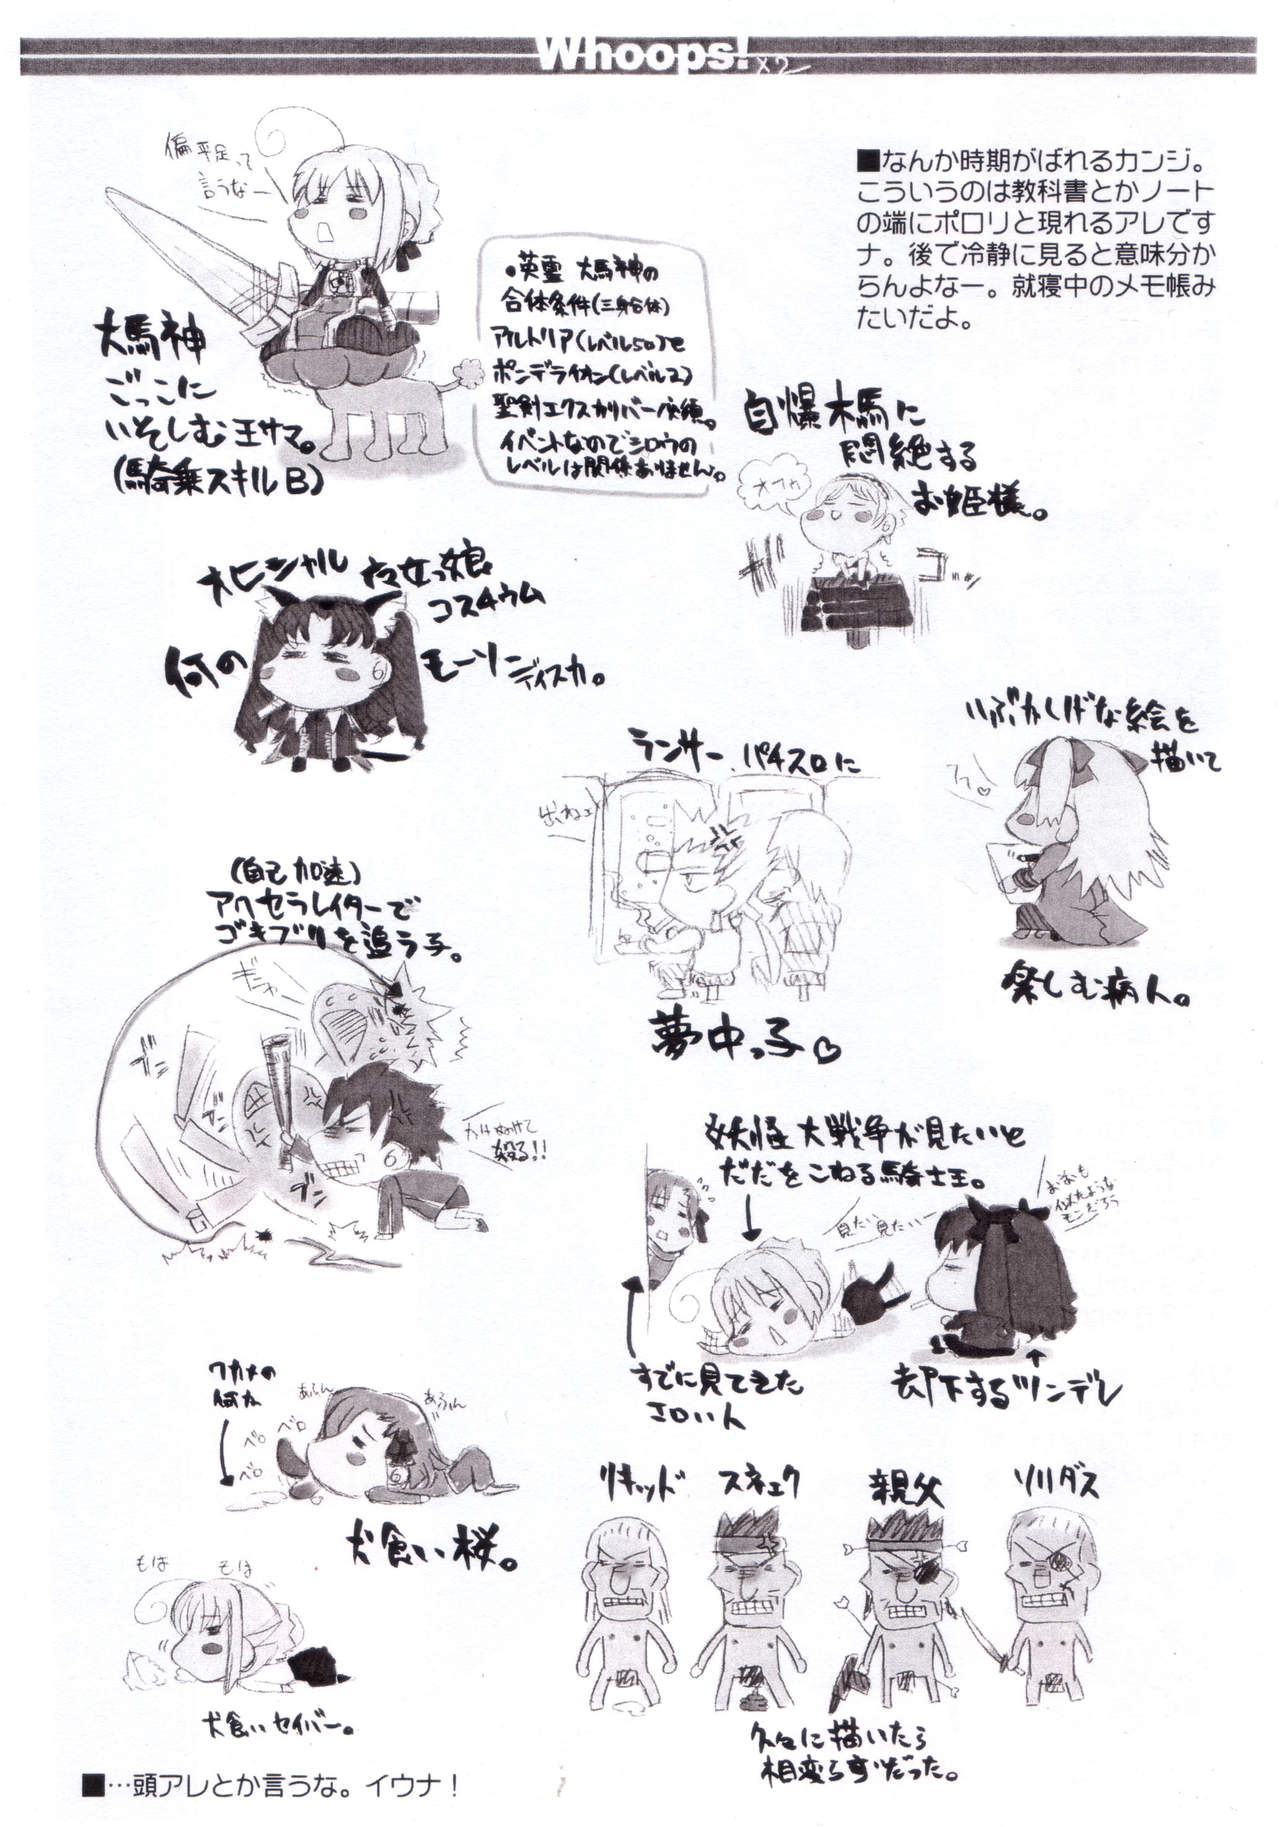 Whoops!
×2
■なんか時期がばれるカンジ。
こういうのは教科書とかノート
の端にポロリと現れるアレです
ナ。後で冷静に見ると意味分か
らんよなー。就寝中のメモ帳み
たいだよ。
偏平足って
言うなー
大馬神
ごっこに
いそしむ王サマ。
(騎乗スキルB)
・英霊 大馬神の
合体条件(三身合体)
アルトリア(レベル50)と
ポンデライオン(レベル2)
聖剣エクスカリバー必須。
イベントなのでシロウの
レベルは関係ありません。
自爆木馬に
悶絶する
お姫様。
オヒシャル
コスチウム
何の
モーソー
ディスカ。
いぶかしげな絵を
描いて
楽しむ病人。
ランサー パチスロに
出ねェ
夢中っ子♡
(自己加速)
アクセラレイターで
ゴキブリを追う子。
殺る!!
妖怪大戦争が見たいと
だだをこねる騎士王。
見たい見たいー
おまえも
似たような
モンだろう
すでに見てきた
エロい人
却下するツンデレ
ワカメの
何か
あふん
あふん
ベロ
ベロ
ベロ
犬食い桜。
もは
もは
犬食いセイバー。
リキッド
スネェク
親父
ソリダス
久々に描いたら
相変らずだった。
■…頭アレとか言うな。イウナ！